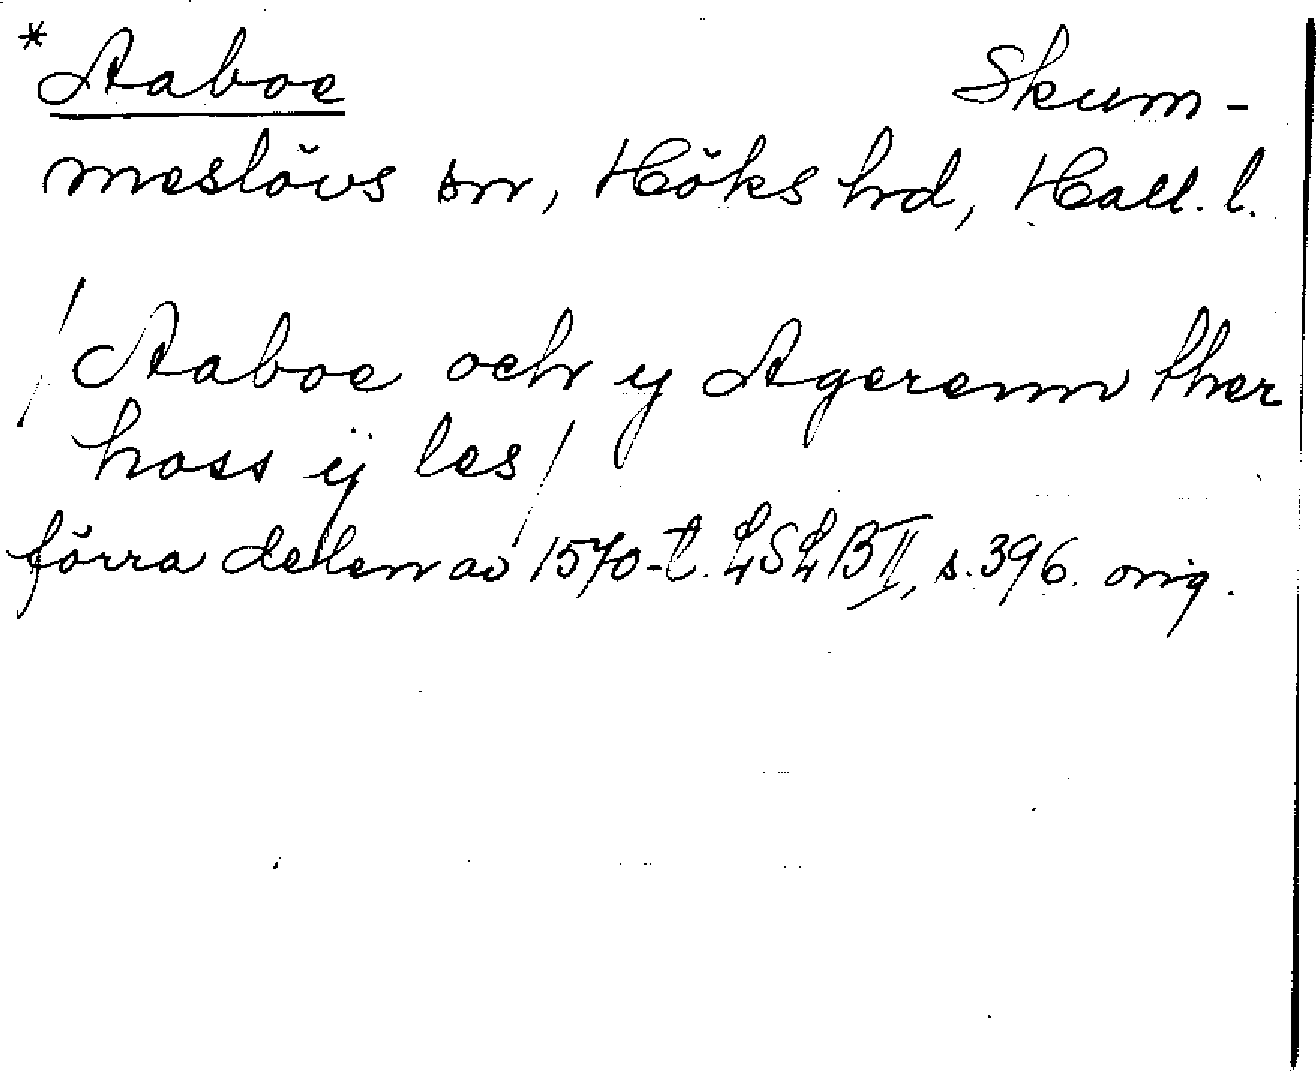 *Aaboe Skum-
meslövs sn, Höks hrd, Hall. l.
/Aaboe och y Agerenn ther
hoss ij les/
förra delen av 1570-t. LSLB II, s. 396. orig.